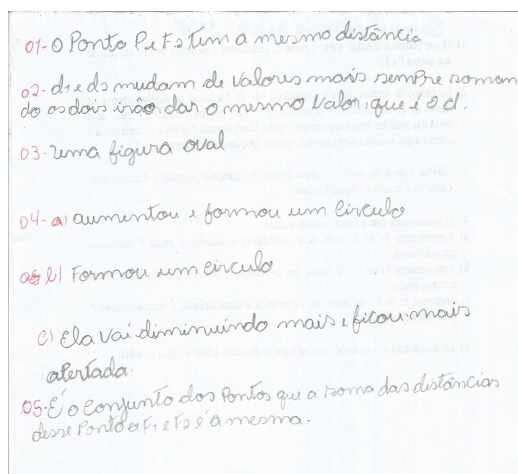 01- O Ponto P e F2 tem a mesmo distância
02- d1 e d2 mudam de valores mais sempre soman
do os dois irão dar o mesmo valor, que é o d.
03- uma figura oval
04- a) aumentou e formou um circulo
b) Formou um circulo
c) Ela vai diminuindo mais e ficou mais
apertada
05- É o conjunto dos Pontos que a soma das distâncias
desse Ponto a F1 e F2 é a mesma.